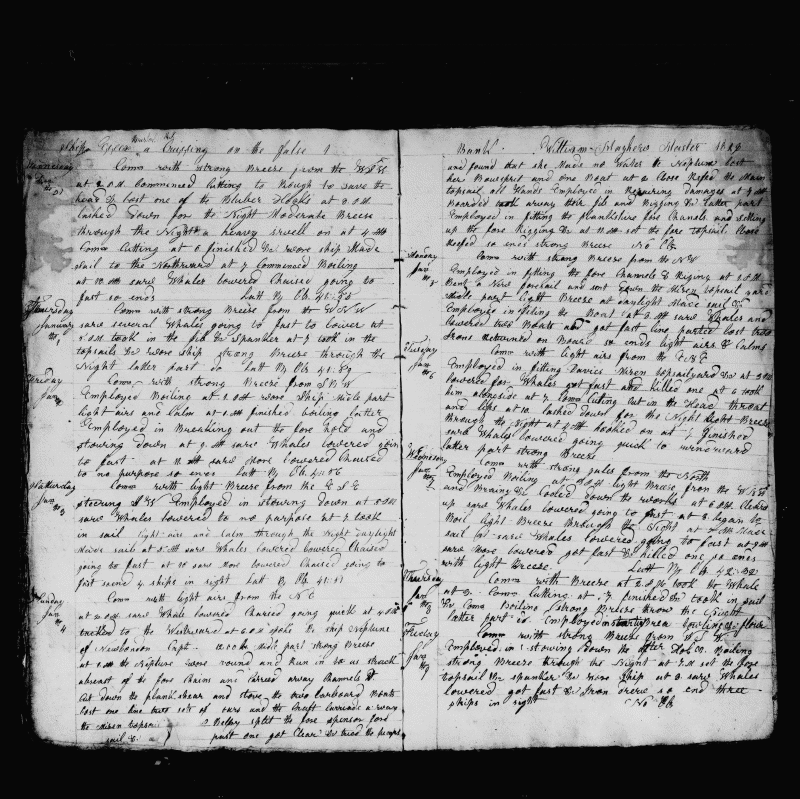 Ship a Cruising on the False
Wednesday Com with strong Breeze from the
at 2 P.M. Commenced Cutting to Rough to save the
head & lost one of the Bluber Hooks at 8 P.M.
lashed down for the Night Moderate Breeze
through the Night & a heavey swell on at 4 AM
Com Cutting at 6 finished & wore ship Made
Sail to the Northward at 7 Commenced Boiling
at 10 AM saw Whales lowered Chased going to
fast so ends Latt By Ob 41:50
Thursday Com with strong Breeze from the W N W
January saw several Whales going to fast to lower at
took in the Jib & Spanker at 7 took in the
topsails & wore ship strong Breeze through the
Night latter part do Latt By Ob 41:89
Friday Com with strong Breeze from S B W
Jan Employed Boiling at 1 P.M. wore Ship Midle part
light airs and Calm at 1 AM finished boiling latter
Employed in Breaking out the fore Hole and
stowing down at 9 AM saw Whales lowered going
to fast at 11 AM saw More lowered Chased
to no purpose so ends Latt By Ob 41:56
Saturday Com with light Breeze from the E S E
Jan 3 steering Employed in stowing down at
saw Whales lowered to no purpose at 7 took
in sail light airs and Calm through the Night Daylight
Made sail at AM saw Whales lowered Chased
going to fast at 10 saw More lowered Chased going to
fast so end 4 ships in sight Latt By Ob 41:51
Sunday Com with light airs from the N E
Jan 4 at 2 P.M. saw Whale lowered Chased going quick at 4 P.M.
tacked to the Westward at 6 P.M. spoke the ship Neptune
of Newlondon Capt Midle part strong Breeze
at the Neptune wore round and Run in to us struck
abreast of the fore Chains and Carried away Channels &
Cut down the plankshear and stove the two Larboard Boats
lost one line two sets of oars and the Craft Carried away
the Mizen topsail split the fore spencer
sail & past one got Clear & tried the pumps
Bank William Master
and found that she Made no Water the Neptune lost
her Bowsprit and one Boat at 2 Close Refed the Main
topsail all Hands Employed in Repairing damages at 7 AM
Boarded took away their Jib and Rigging & latter part
Employed in fitting the plankshire fore Chanels and setting
up the fore Rigging & at 11 AM set the fore topsail Close
Reefed so ends strong Breeze No Ob
Monday Com with strong Breeze from the N W
Jan Employed in fitting the fore Channels & Riging at
Bent a New foresail and sent down the Mizen topsail yard
Midle part light Breeze at daylight Made sail &
Employed in fitting the Boat at AM saw Whales and
lowered two Boats and got fast line parted lost two
Irons Returned on Board so ends light airs & Calms
Tuesday Com with light airs from the E N E
Jan 6 Employed in fitting Davies Mizen topsailyard & at 3 P.M.
lowered for Whales got fast and killed one at 6 took
him alongside at 7 Com Cuting Cut in the Head throat
and lips at 10 lashed down for the Night light Breeze
through the Night at AM hooked on at 7 finished
saw Whales lowered going quick to windward
latter part strong Breeze
Wednesday Com with strong gales from the North
Jan 7 Employed Boiling at P.M. light Breeze from the
and Braing & Cooled down the works at 6 P.M. Cleared
up saw Whales lowered going to fast at 8 began to
Boil light Breeze through the Night at AM Made
sail at saw Whales lowered going to fast at 9 AM
saw More lowered got fast & killed one so ends
with light Breeze Latt By Ob 42:32
Thursday Com with Breeze at 2 P.M. took the Whale
Jan 8 at Com Cutting at 7 finished & took in sail
& Com Boiling strong Breeze throw the Night
latter part do Employed
Friday Com with strong Breeze from
Jan 9 Employed in stowing down the after Hole & Boiling
strong Breeze through the Night at 7 AM set the fore
topsail & spanker & wore Ship at saw Whales
lowered got fast & Iron so end three
ships in sight No Ob